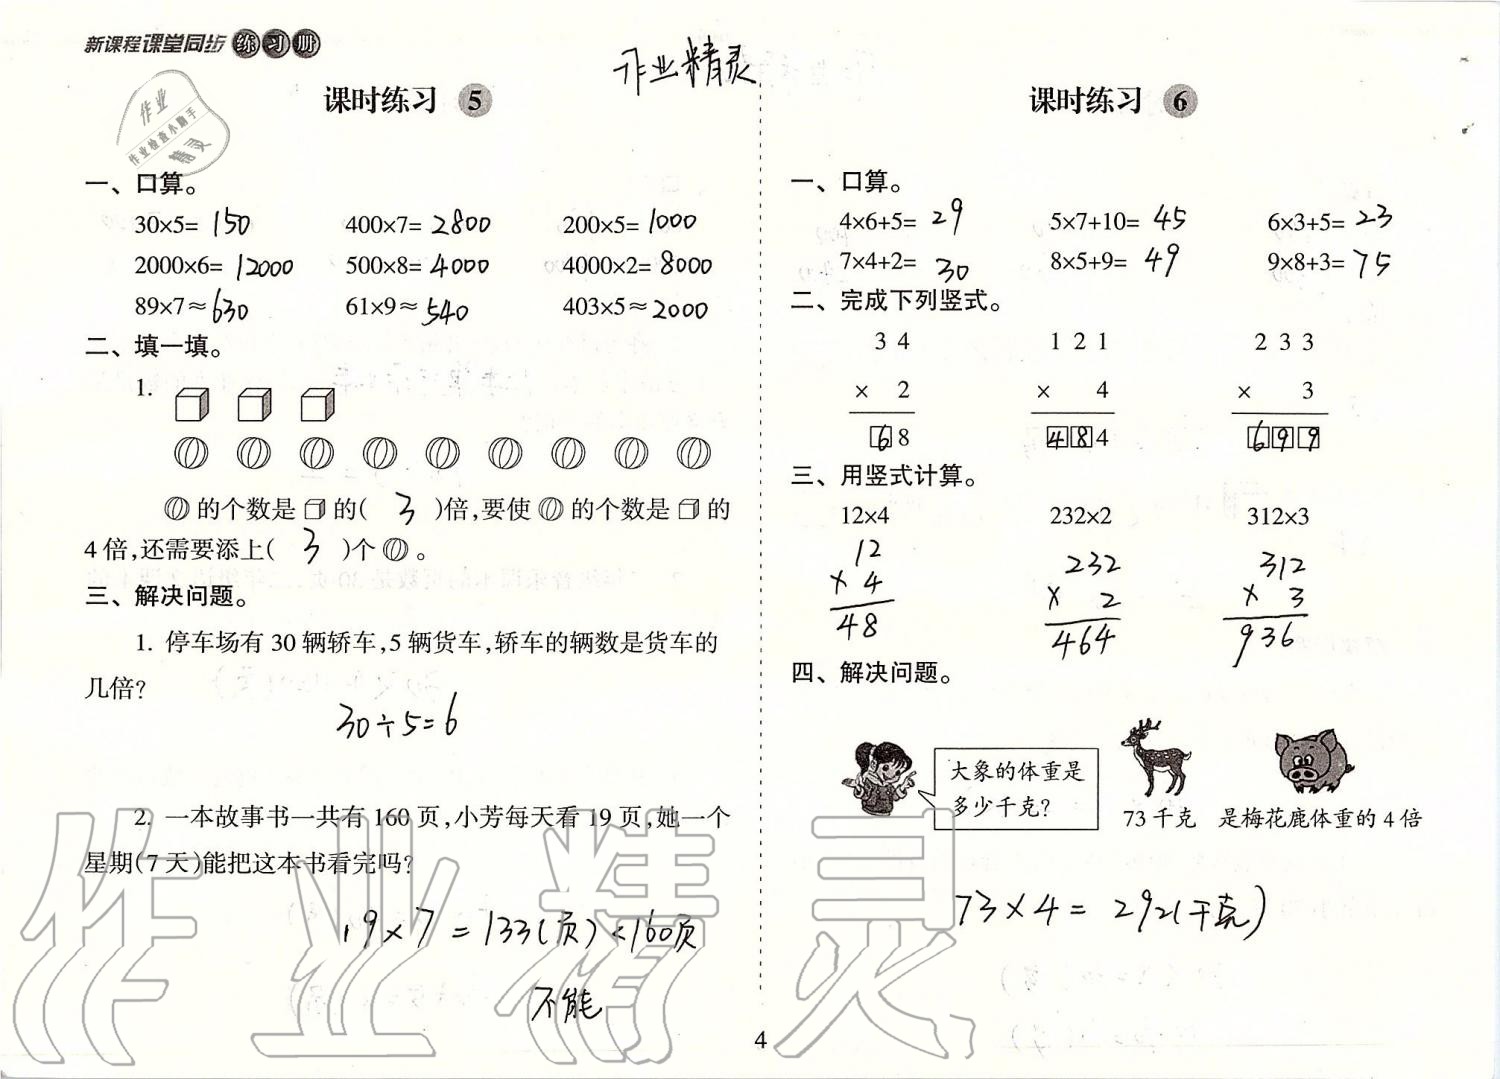 新课程课堂同步练习册
作业精灵
作业
作业检查小助手
精灵
课时练习 5
一、口算。
30×5= 150 400×7= 2800 200×5= 1000
2000×6= 12000 500×8= 4000 4000×2= 8000
89×7≈ 630 61×9≈ 540 403×5≈ 2000
二、填一填。
1.
的个数是 的( 3 )倍,要使 的个数是 的
4倍,还需要添上( 3 )个 。
三、解决问题。
1. 停车场有30辆轿车,5辆货车,轿车的辆数是货车的
几倍?
30÷5=6
2. 一本故事书一共有160页,小芳每天看19页,她一个
星期(7天)能把这本书看完吗?
19×7=133(页)<160页
不能
课时练习 6
一、口算。
4×6+5= 29 5×7+10= 45 6×3+5= 23
7×4+2= 30 8×5+9= 49 9×8+3= 75
二、完成下列竖式。
34 121 233
× 2 × 4 × 3
68 484 699
三、用竖式计算。
12×4 232×2 312×3
12 232 312
× 4 × 2 × 3
48 464 936
四、解决问题。
大象的体重是
多少千克?
73千克 是梅花鹿体重的4倍
73×4=292(千克)
作业精灵
4